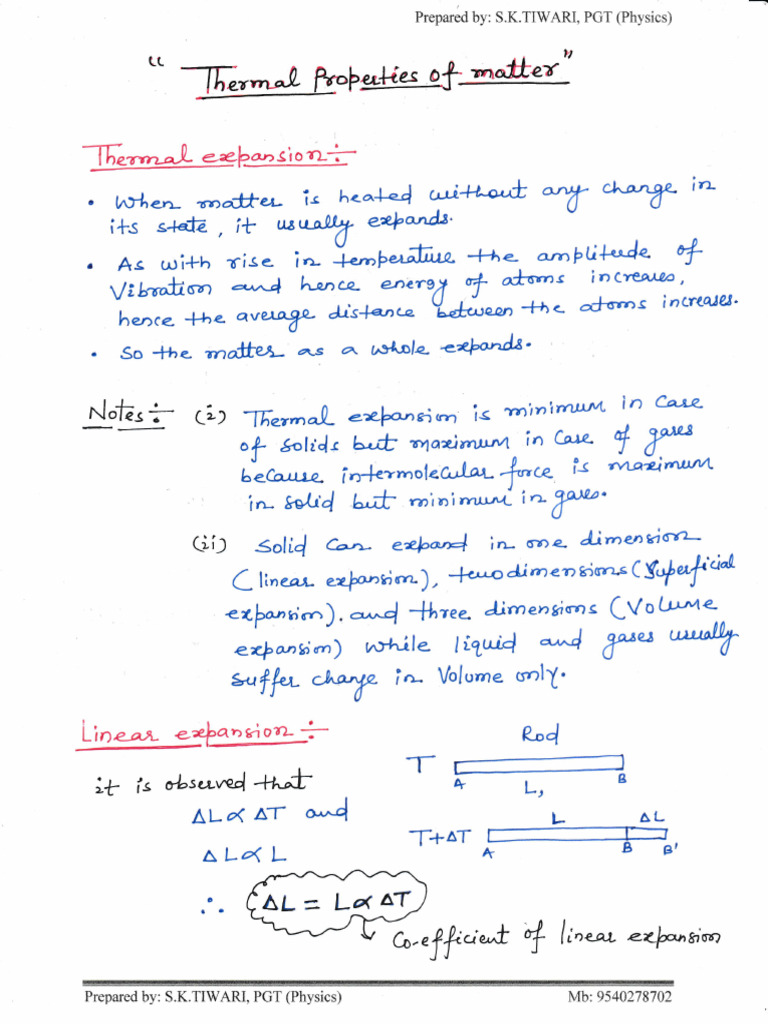 Prepared by: S.K.TIWARI, PGT (Physics)
“ Thermal Properties of matter ”
Thermal expansion :-
• When matter is heated without any change in
its state, it usually expands.
• As with rise in temperature the amplitude of
Vibration and hence energy of atoms increases,
hence the average distance between the atoms increases.
• So the matter as a whole expands.
Notes :- (i) Thermal expansion is minimum in case
of solids but maximum in case of gases
because intermolecular force is maximum
in solid but minimum in gases.
(ii) Solid can expand in one dimension
(linear expansion), two dimensions (Superficial
expansion). and three dimensions (Volume
expansion) while liquid and gases usually
suffer change in Volume only.
Linear expansion :-
Rod
T
A L, B
it is observed that
ΔL ∝ ΔT and
L ΔL
T+ΔT
A B B'
ΔL ∝ L
∴ ΔL = Lα ΔT
Co-efficient of linear expansion
Prepared by: S.K.TIWARI, PGT (Physics) Mb: 9540278702